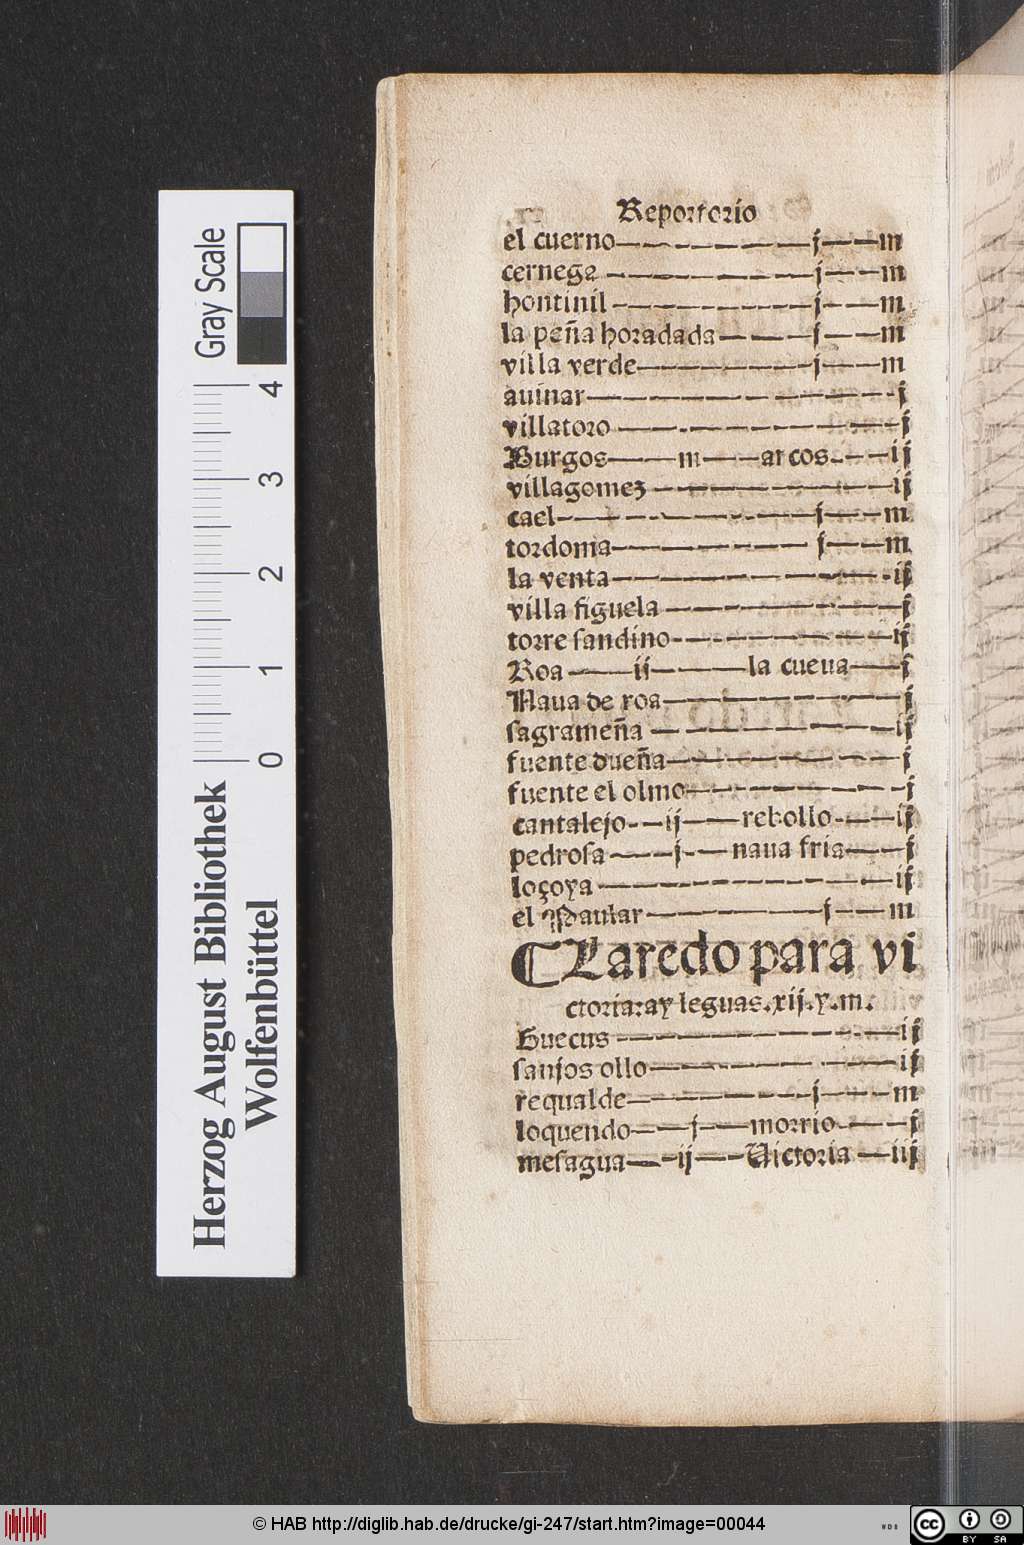 Reportorio
el cuerno—————j——m
cernega—————j——m
hontinil—————j——m
la peña horadada———j——m
villa verde—————j——m
auinar——————j
villatoro——————j
Burgos——m——arcos——ij
villagomez—————ij
cael—————j——m
tordoma—————j——m
la venta—————ij
villa figuela—————j
torre sandino—————ij
Roa——ij———la cueua——j
Naua de roa—————j
sagrameña—————ij
fuente dueña—————j
fuente el olmo—————j
cantalejo——ij——rebollo——ij
pedrosa——j——naua fria——j
loçoya—————ij
el Paular—————j——m
¶Laredo para vi
ctoria:ay leguas.xij.y.m.
Guecus—————ij
sanjos ollo—————ij
requalde————j——m
loquendo——j——morrio——j
mesagua——ij——Uictoria——iij
Herzog August Bibliothek
Wolfenbüttel
0 1 2 3 4
Gray Scale
© HAB http://diglib.hab.de/drucke/gi-247/start.htm?image=00044
WDB
cc BY SA